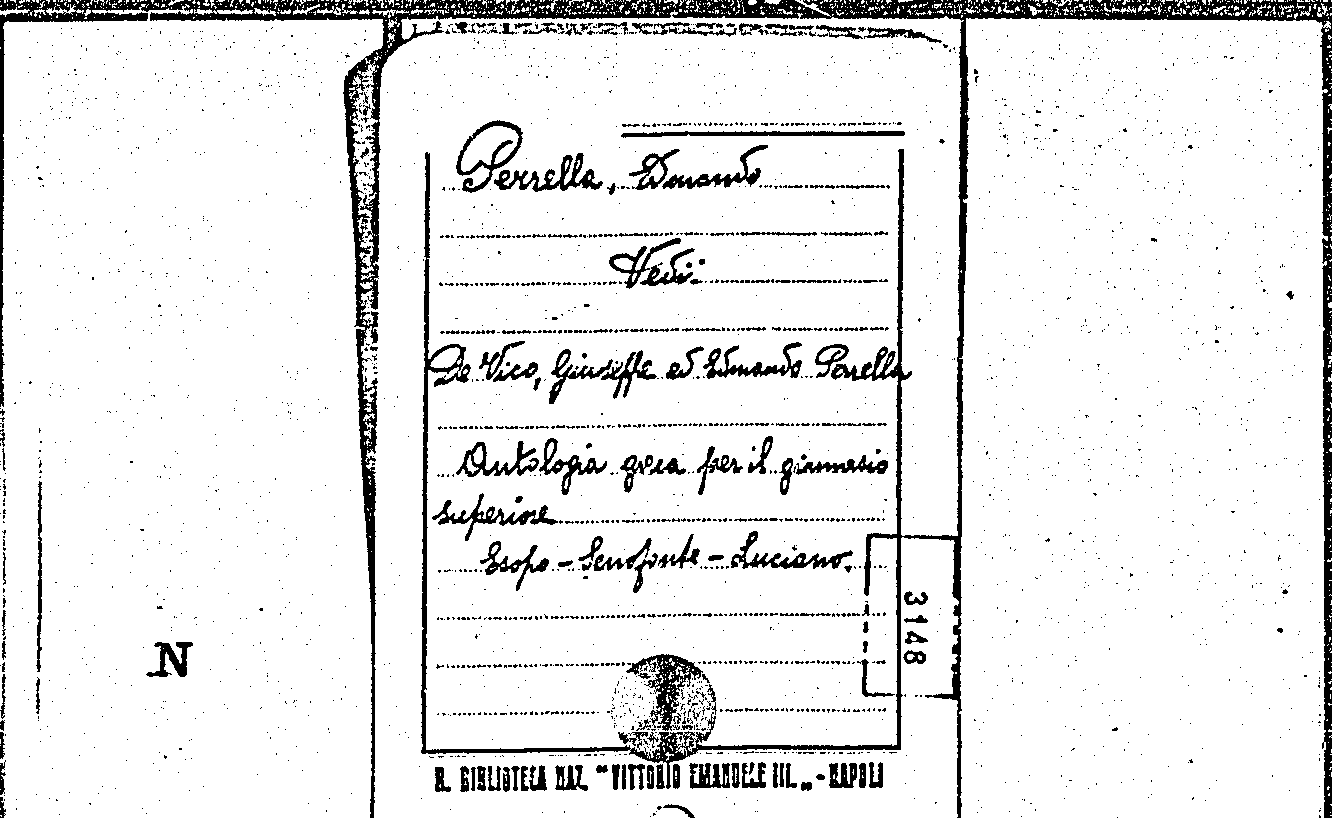 Perrella, Edmondo
Vedi:
De Vico, Giuseppe ed Edmondo Perrella
Antologia greca per il ginnasio
superiore
Esopo - Senofonte - Luciano.
3148
N
R. BIBLIOTECA NAZ. "VITTORIO EMANUELE III. „ - NAPOLI